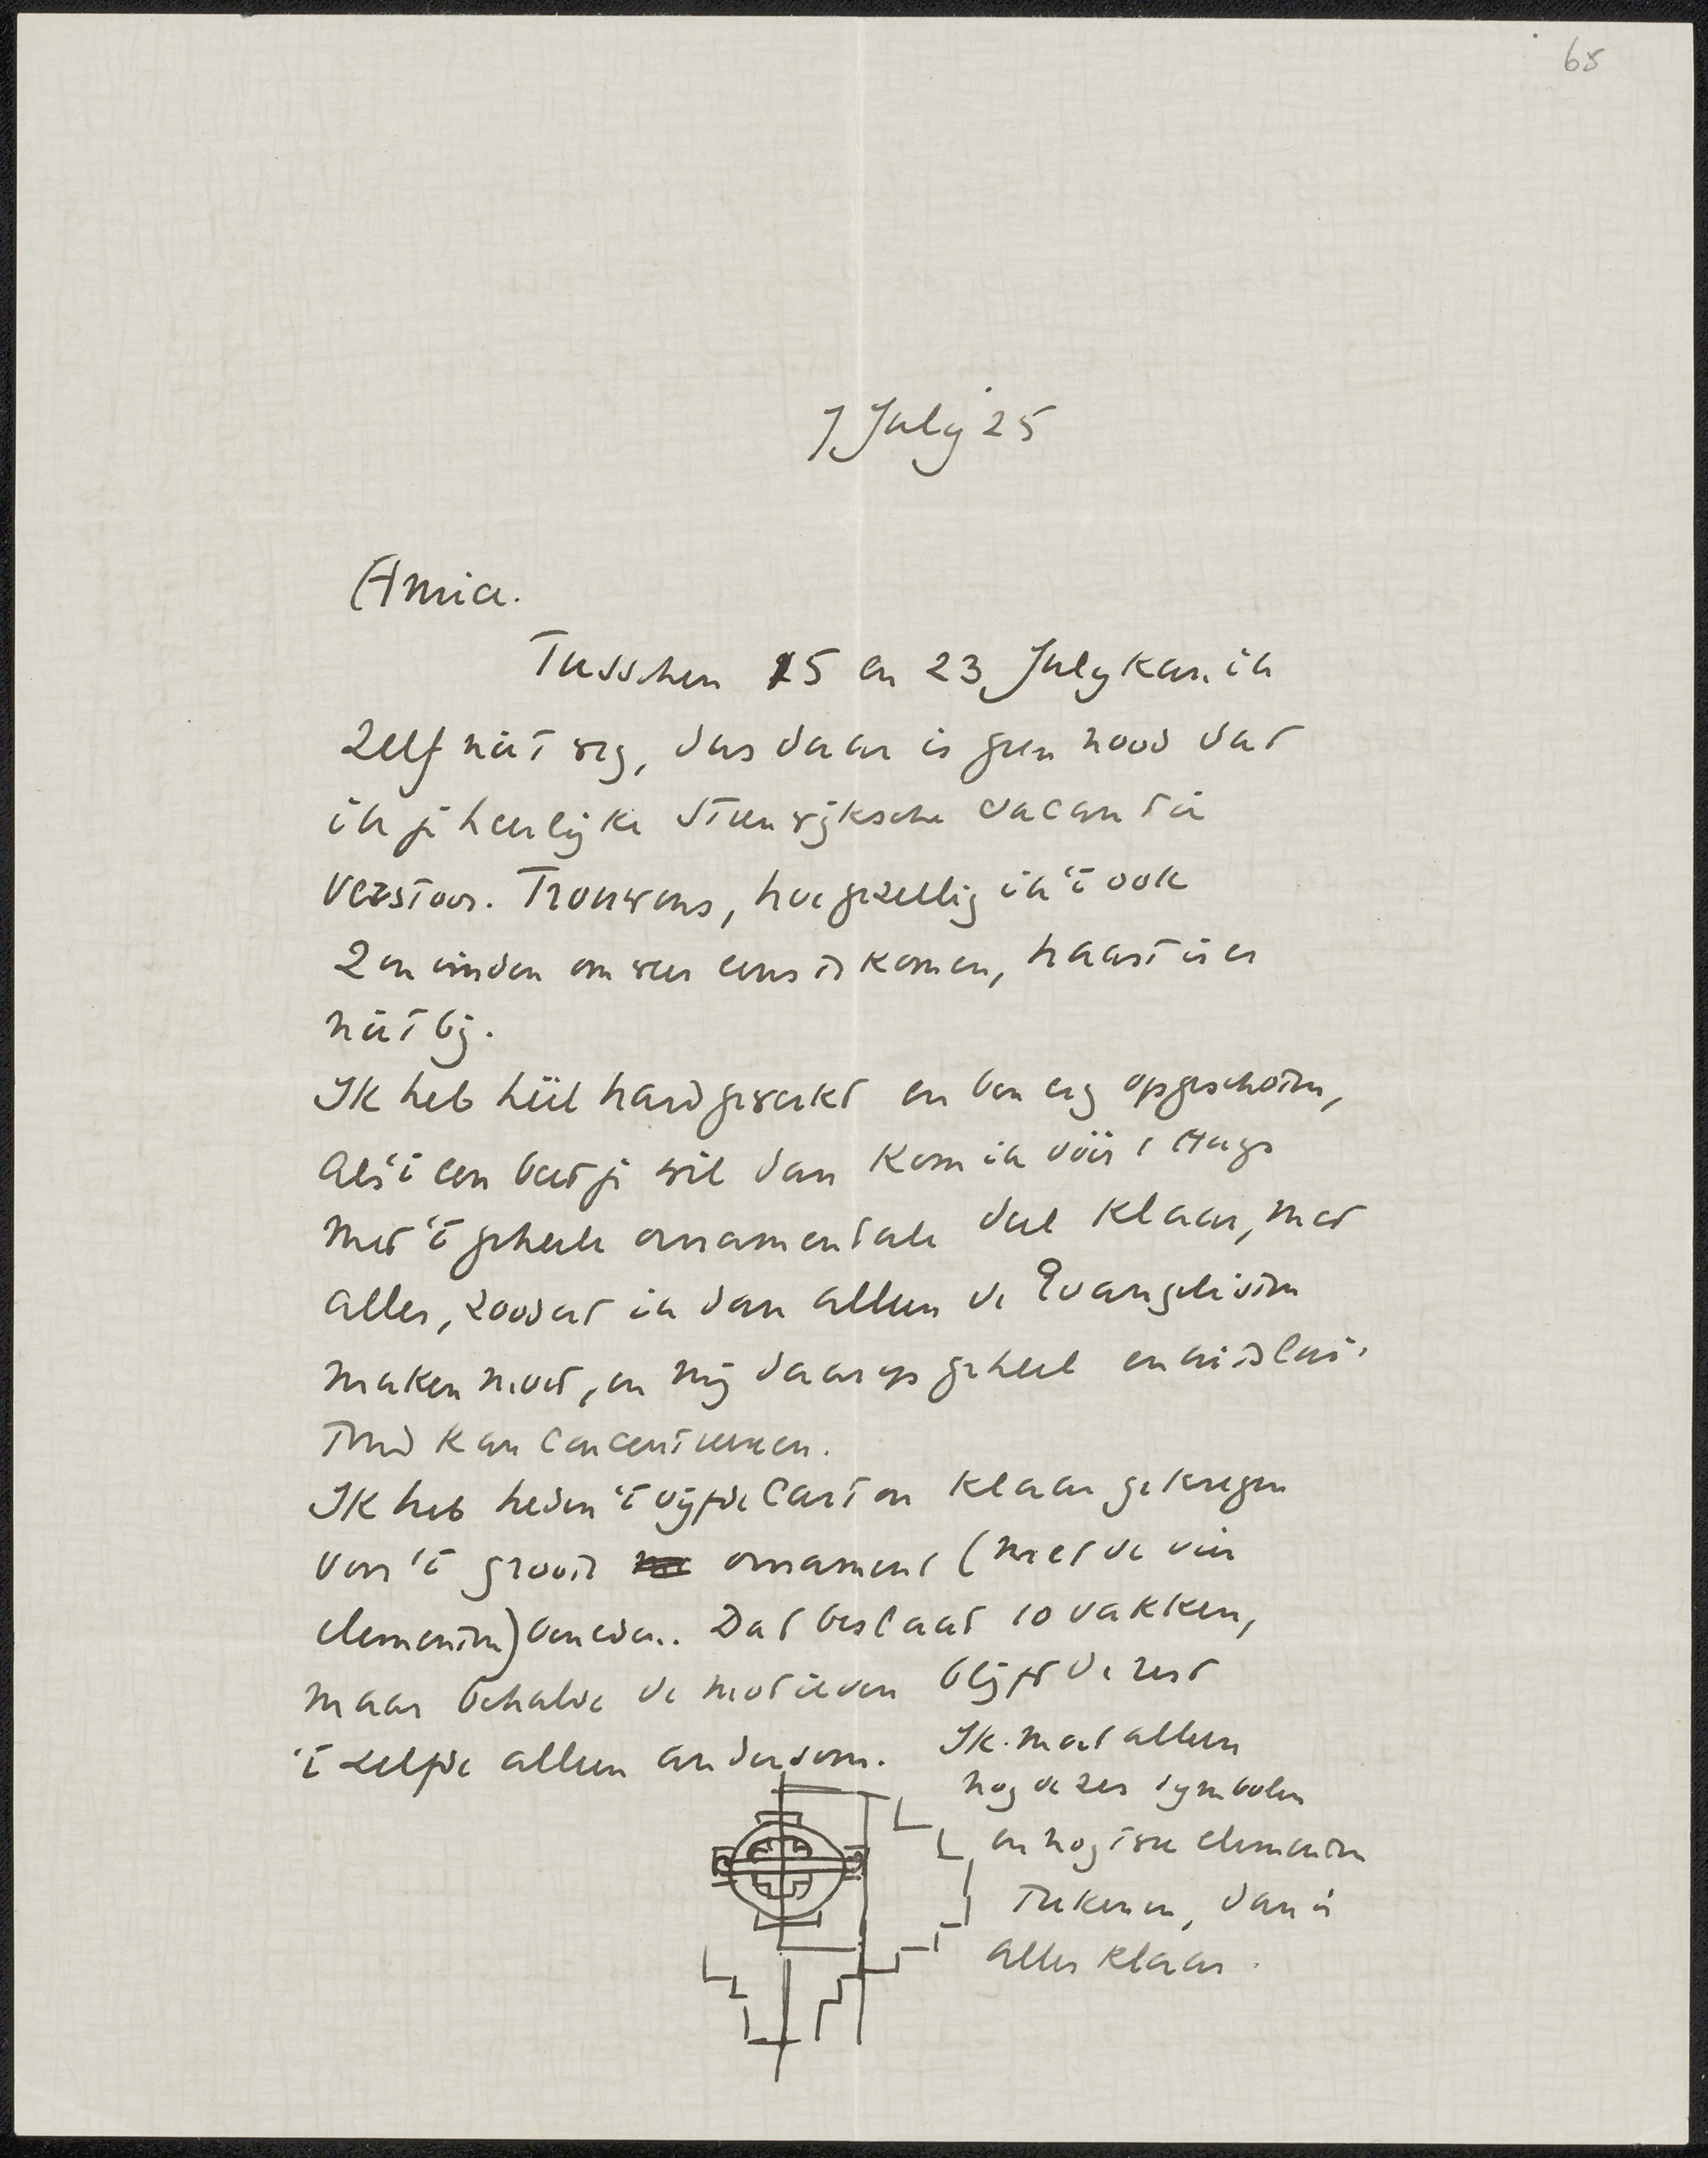 65
7 July '25
Amica.
Tusschen 15 en 23 July kan ik
zelf niet weg, dus daar is geen nood dat
ik je heerlijke Steenwijksche vacantie
verstoor. Trouwens, hoe gezellig ik 't ook
zou vinden om weer eens te komen, haast is er
niet bij.
Ik heb héél hard gewerkt en ben erg opgeschoten,
als 't een beetje wil dan kom ik vóór 1 Aug
met 't geheele ornamentale deel klaar, met
alles, zoodat ik dan alleen de Evangelisten
maken moet, en mij daarop geheel en uitslui-
tend kan concentreeren.
Ik heb heden 't vijfde carton klaar gekregen
van 't groote ornament (met de vier
elementen) beneden. Dat beslaat 10 vakken,
maar behalve de motieven blijft de rest
't zelfde alleen andersom. Ik moet alleen
nog de zes symbolen
en nog twee elementen
teekenen, dan is
alles klaar.